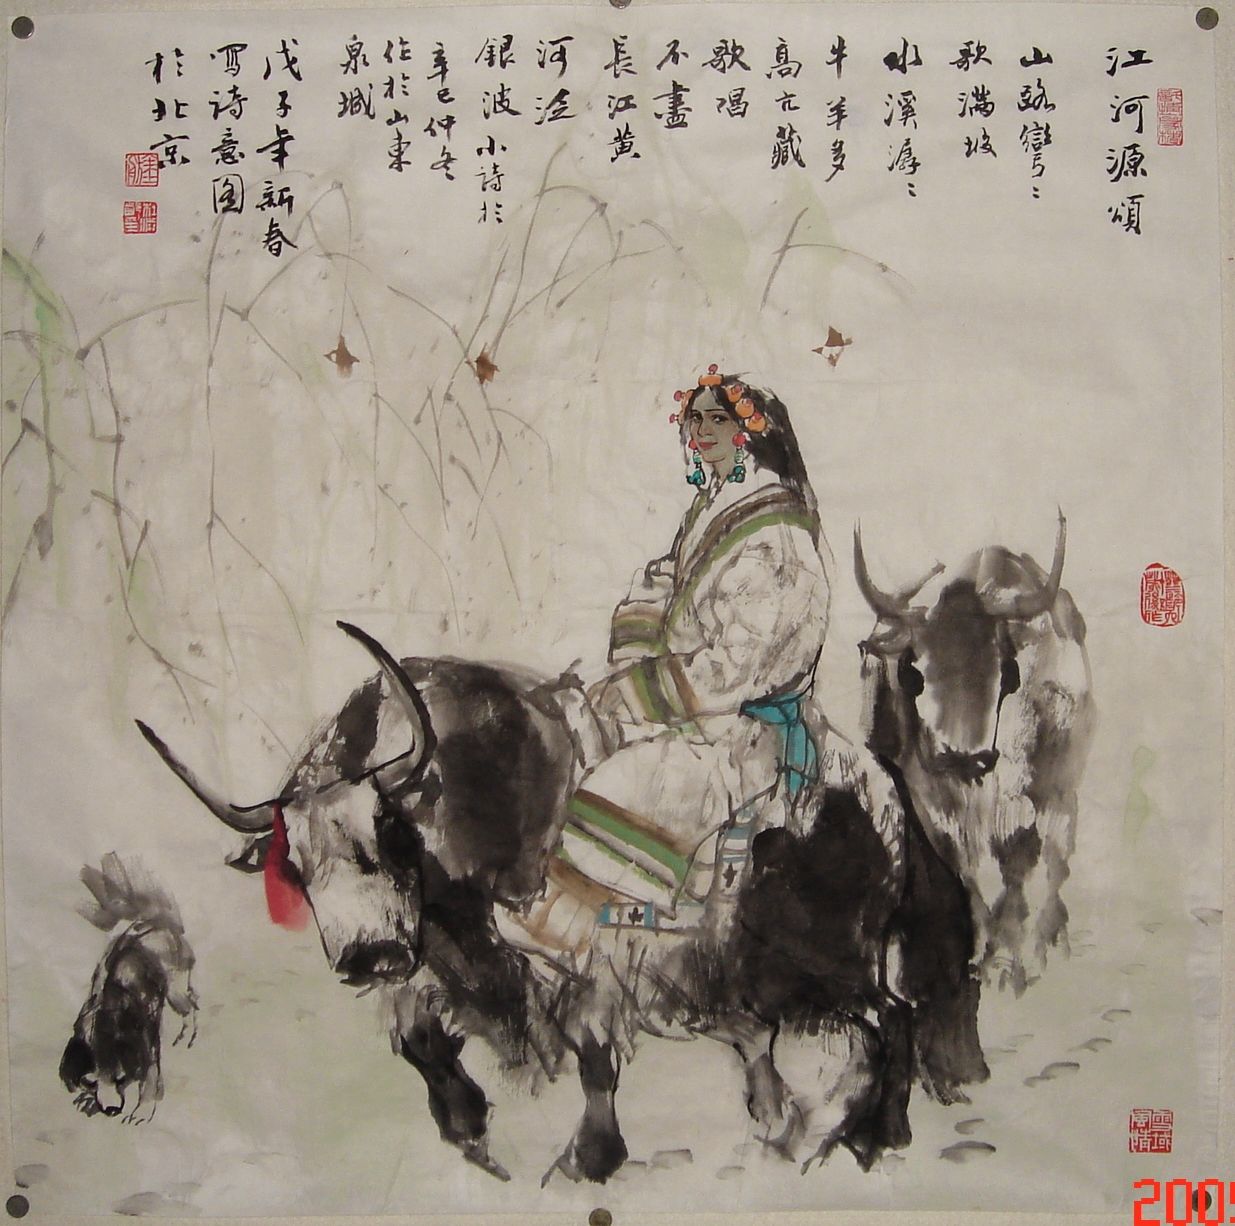 江河源頌
山路彎〻
歌滿坡
水溪潺〻
牛羊多
高亢藏
歌唱
不盡
長江黄
河泛
銀波小詩於
辛巳仲冬
作於山東
泉城
戊子年新春
寫詩意圖
於北京
雪域風情
2005